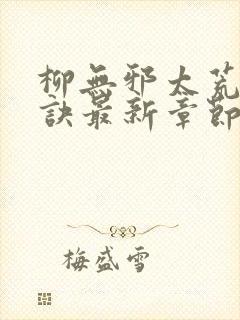 柳無邪太荒
訣最新章節
梅盛雪